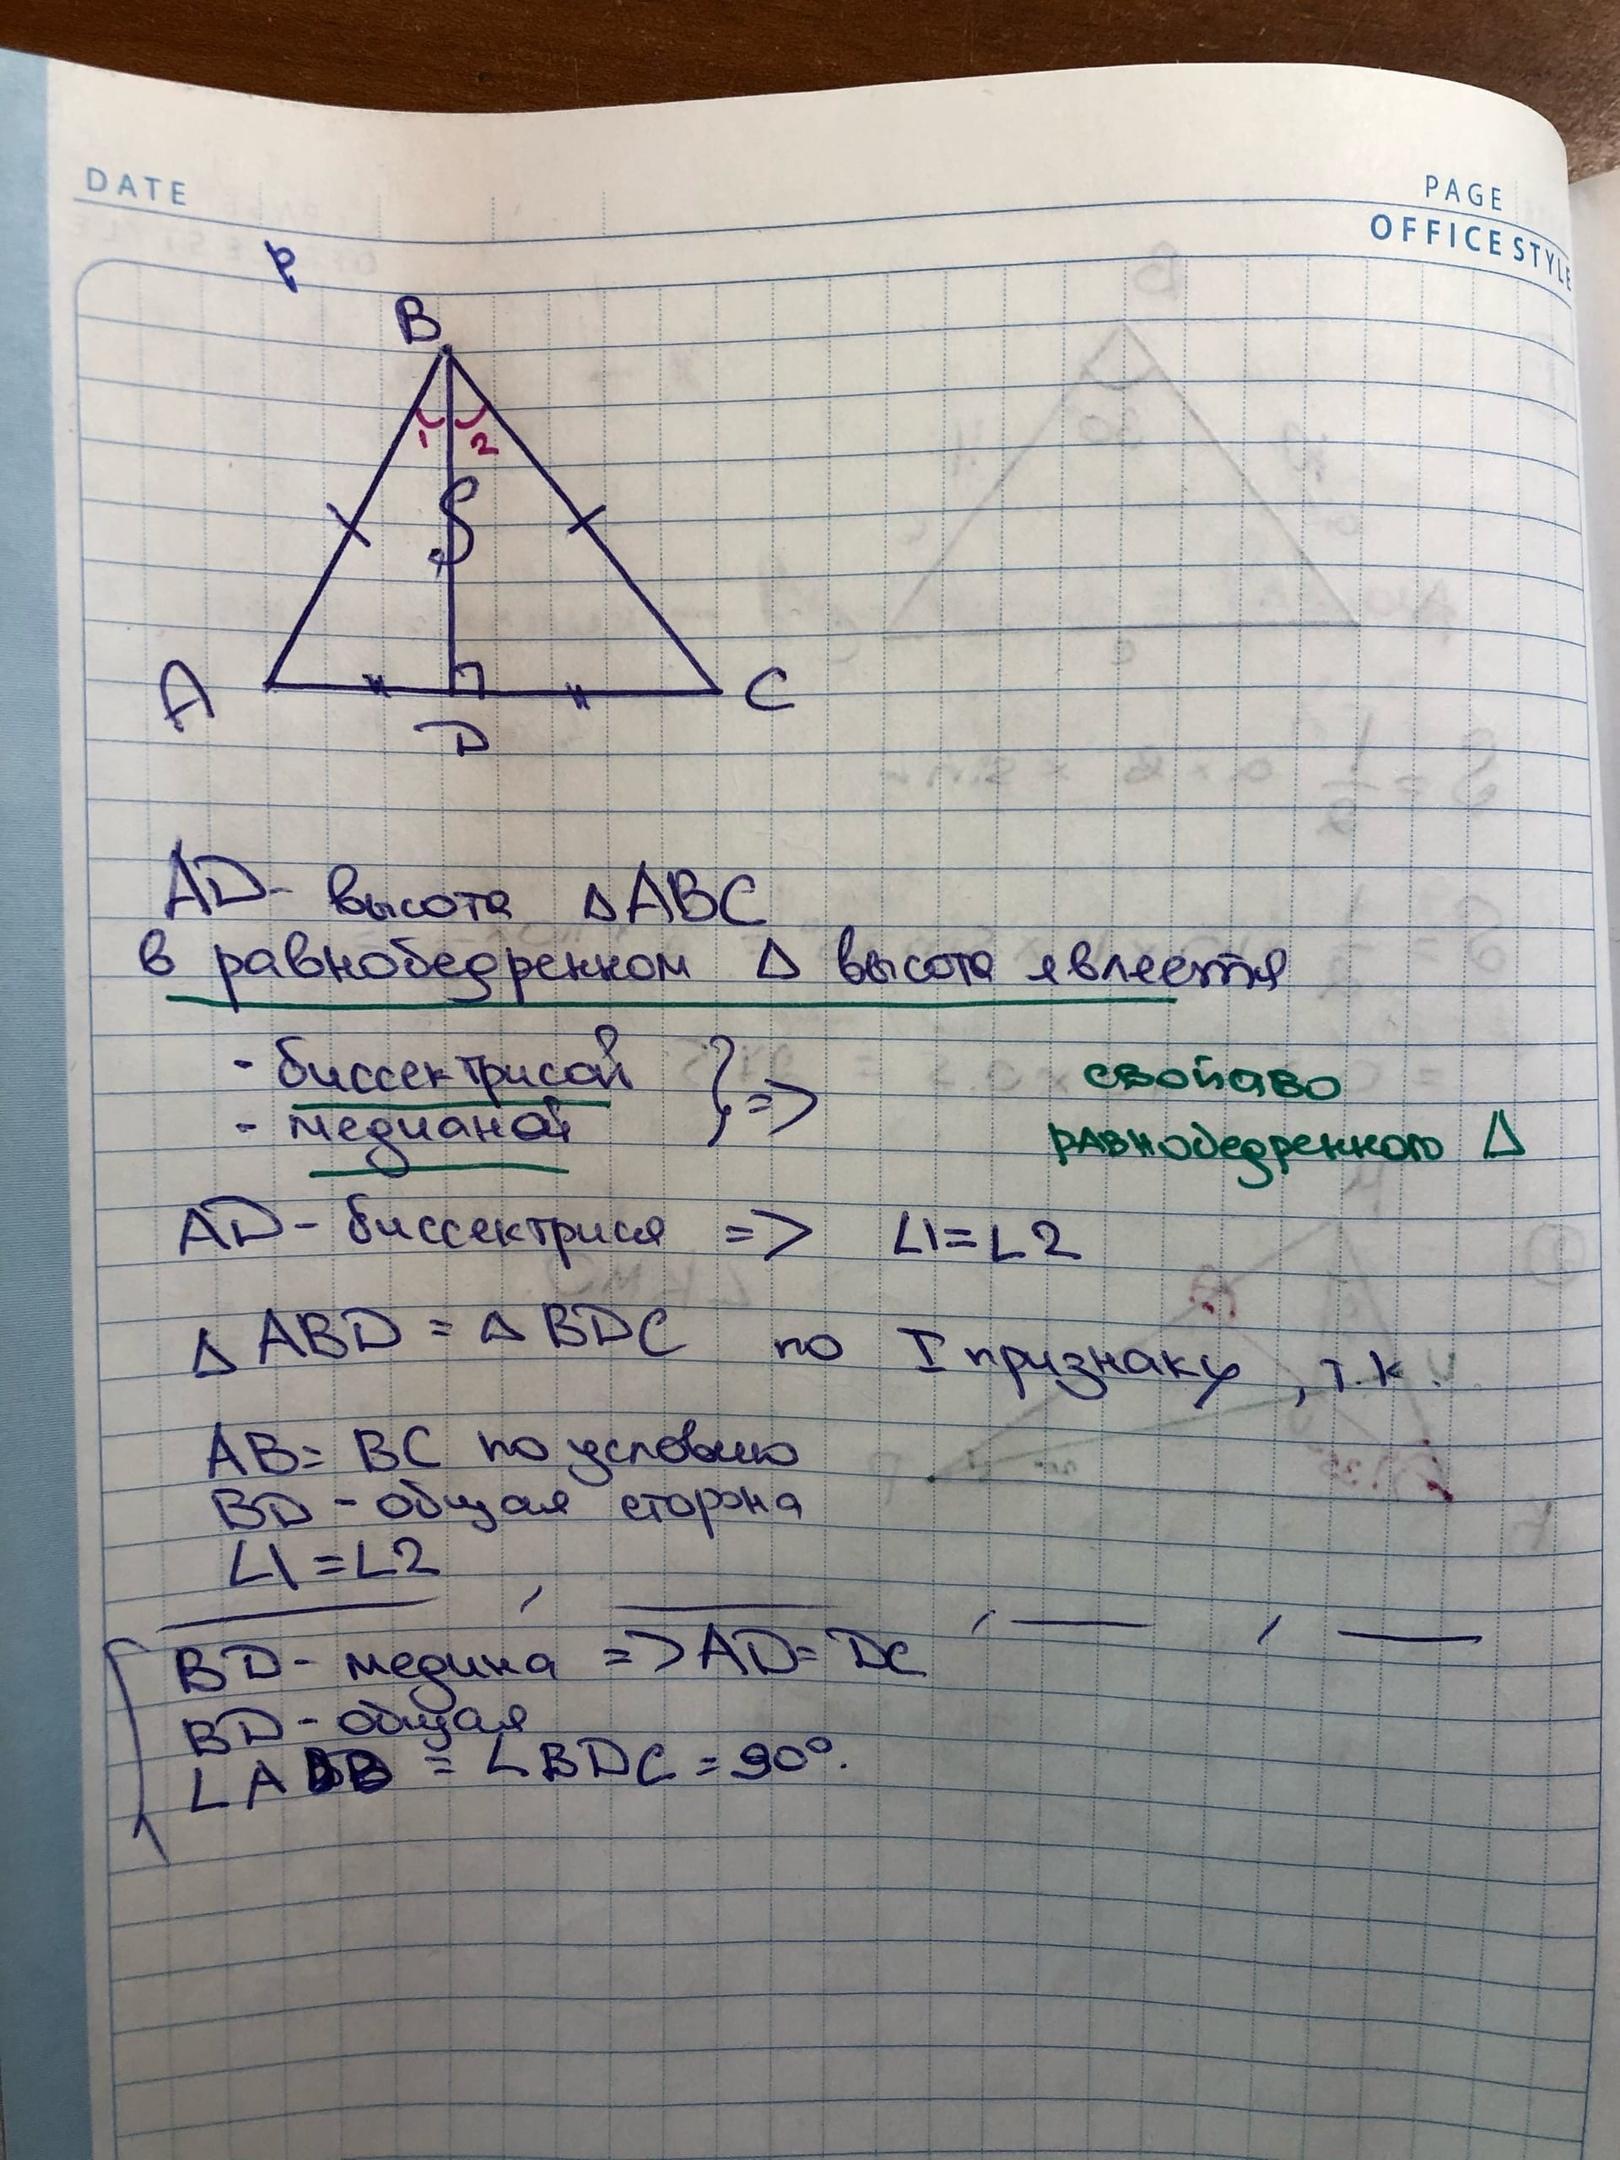 DATE
PAGE
OFFICE STYLE
B
1 2
A
C
D
AD- высота ΔABC
в равнобедренном Δ высота явлеется
- биссектрисой } =>
- медианой
свойаво
равнобедренного Δ
AD- биссектриса => ∠1=∠2
Δ ABD = Δ BDC по I признаку, т.к.
AB= BC по условию
BD - общая сторона
∠1=∠2
BD- медина => AD= DC
BD- общая
∠ADB = ∠BDC = 90°.